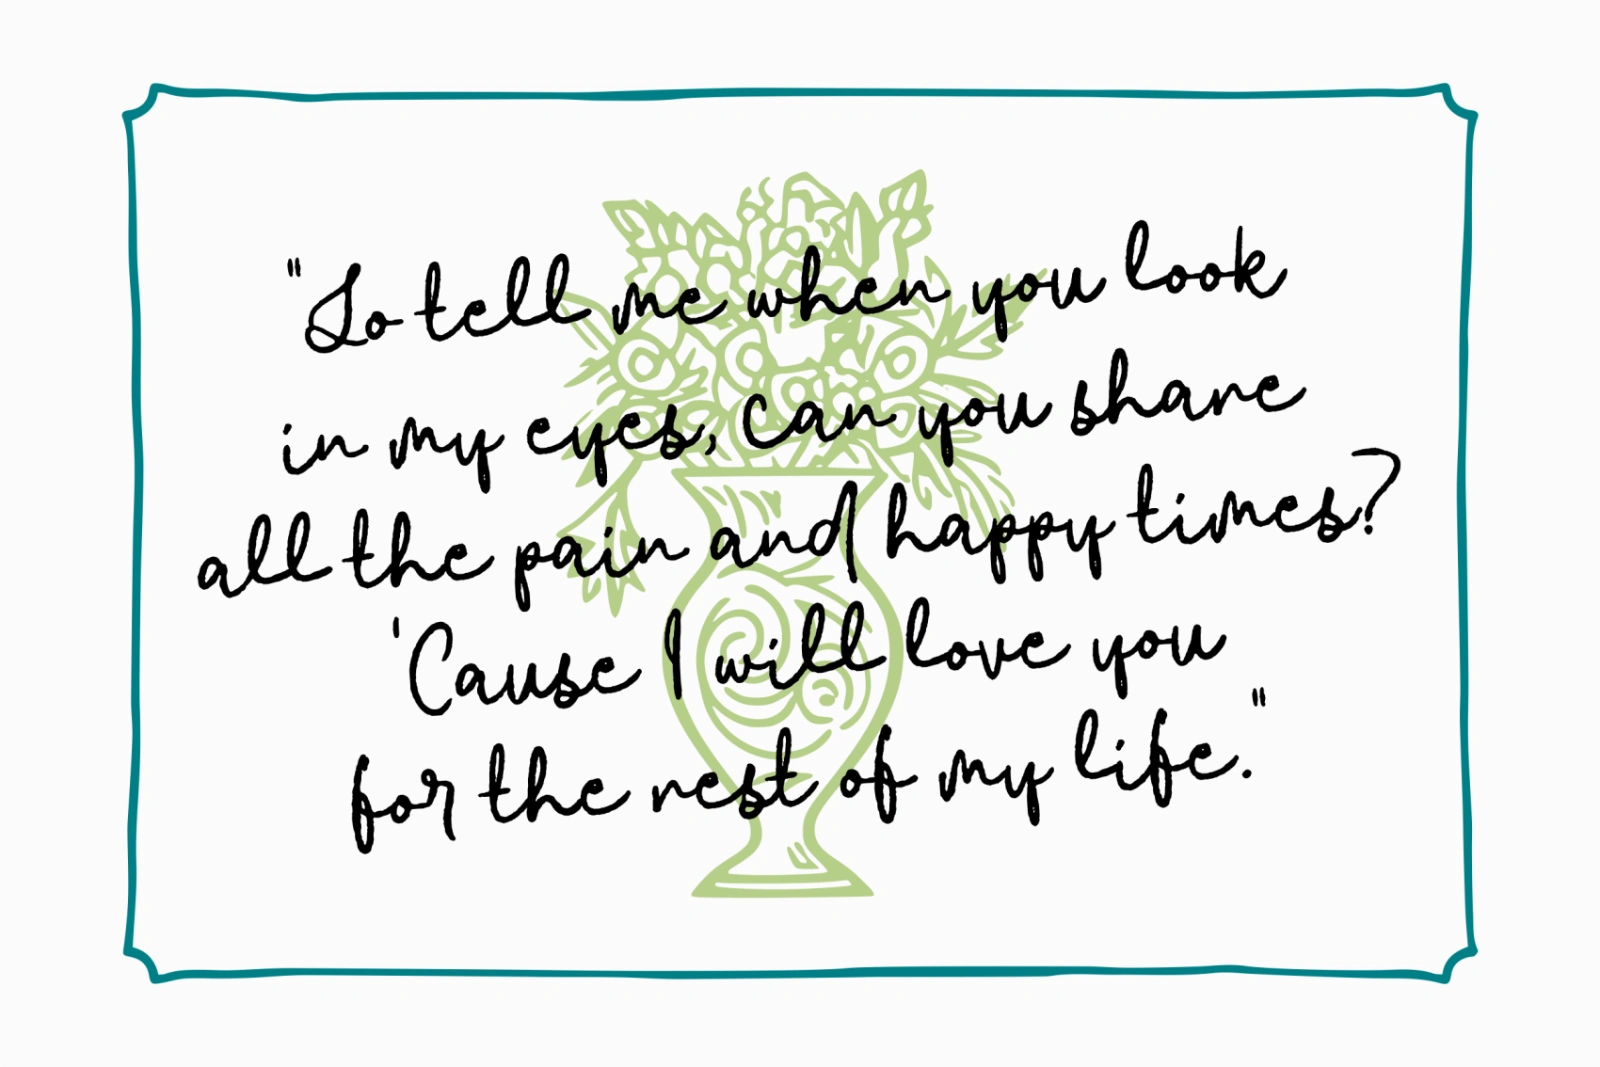 "So tell me when you look
in my eyes, can you share
all the pain and happy times?
'Cause I will love you
for the rest of my life."